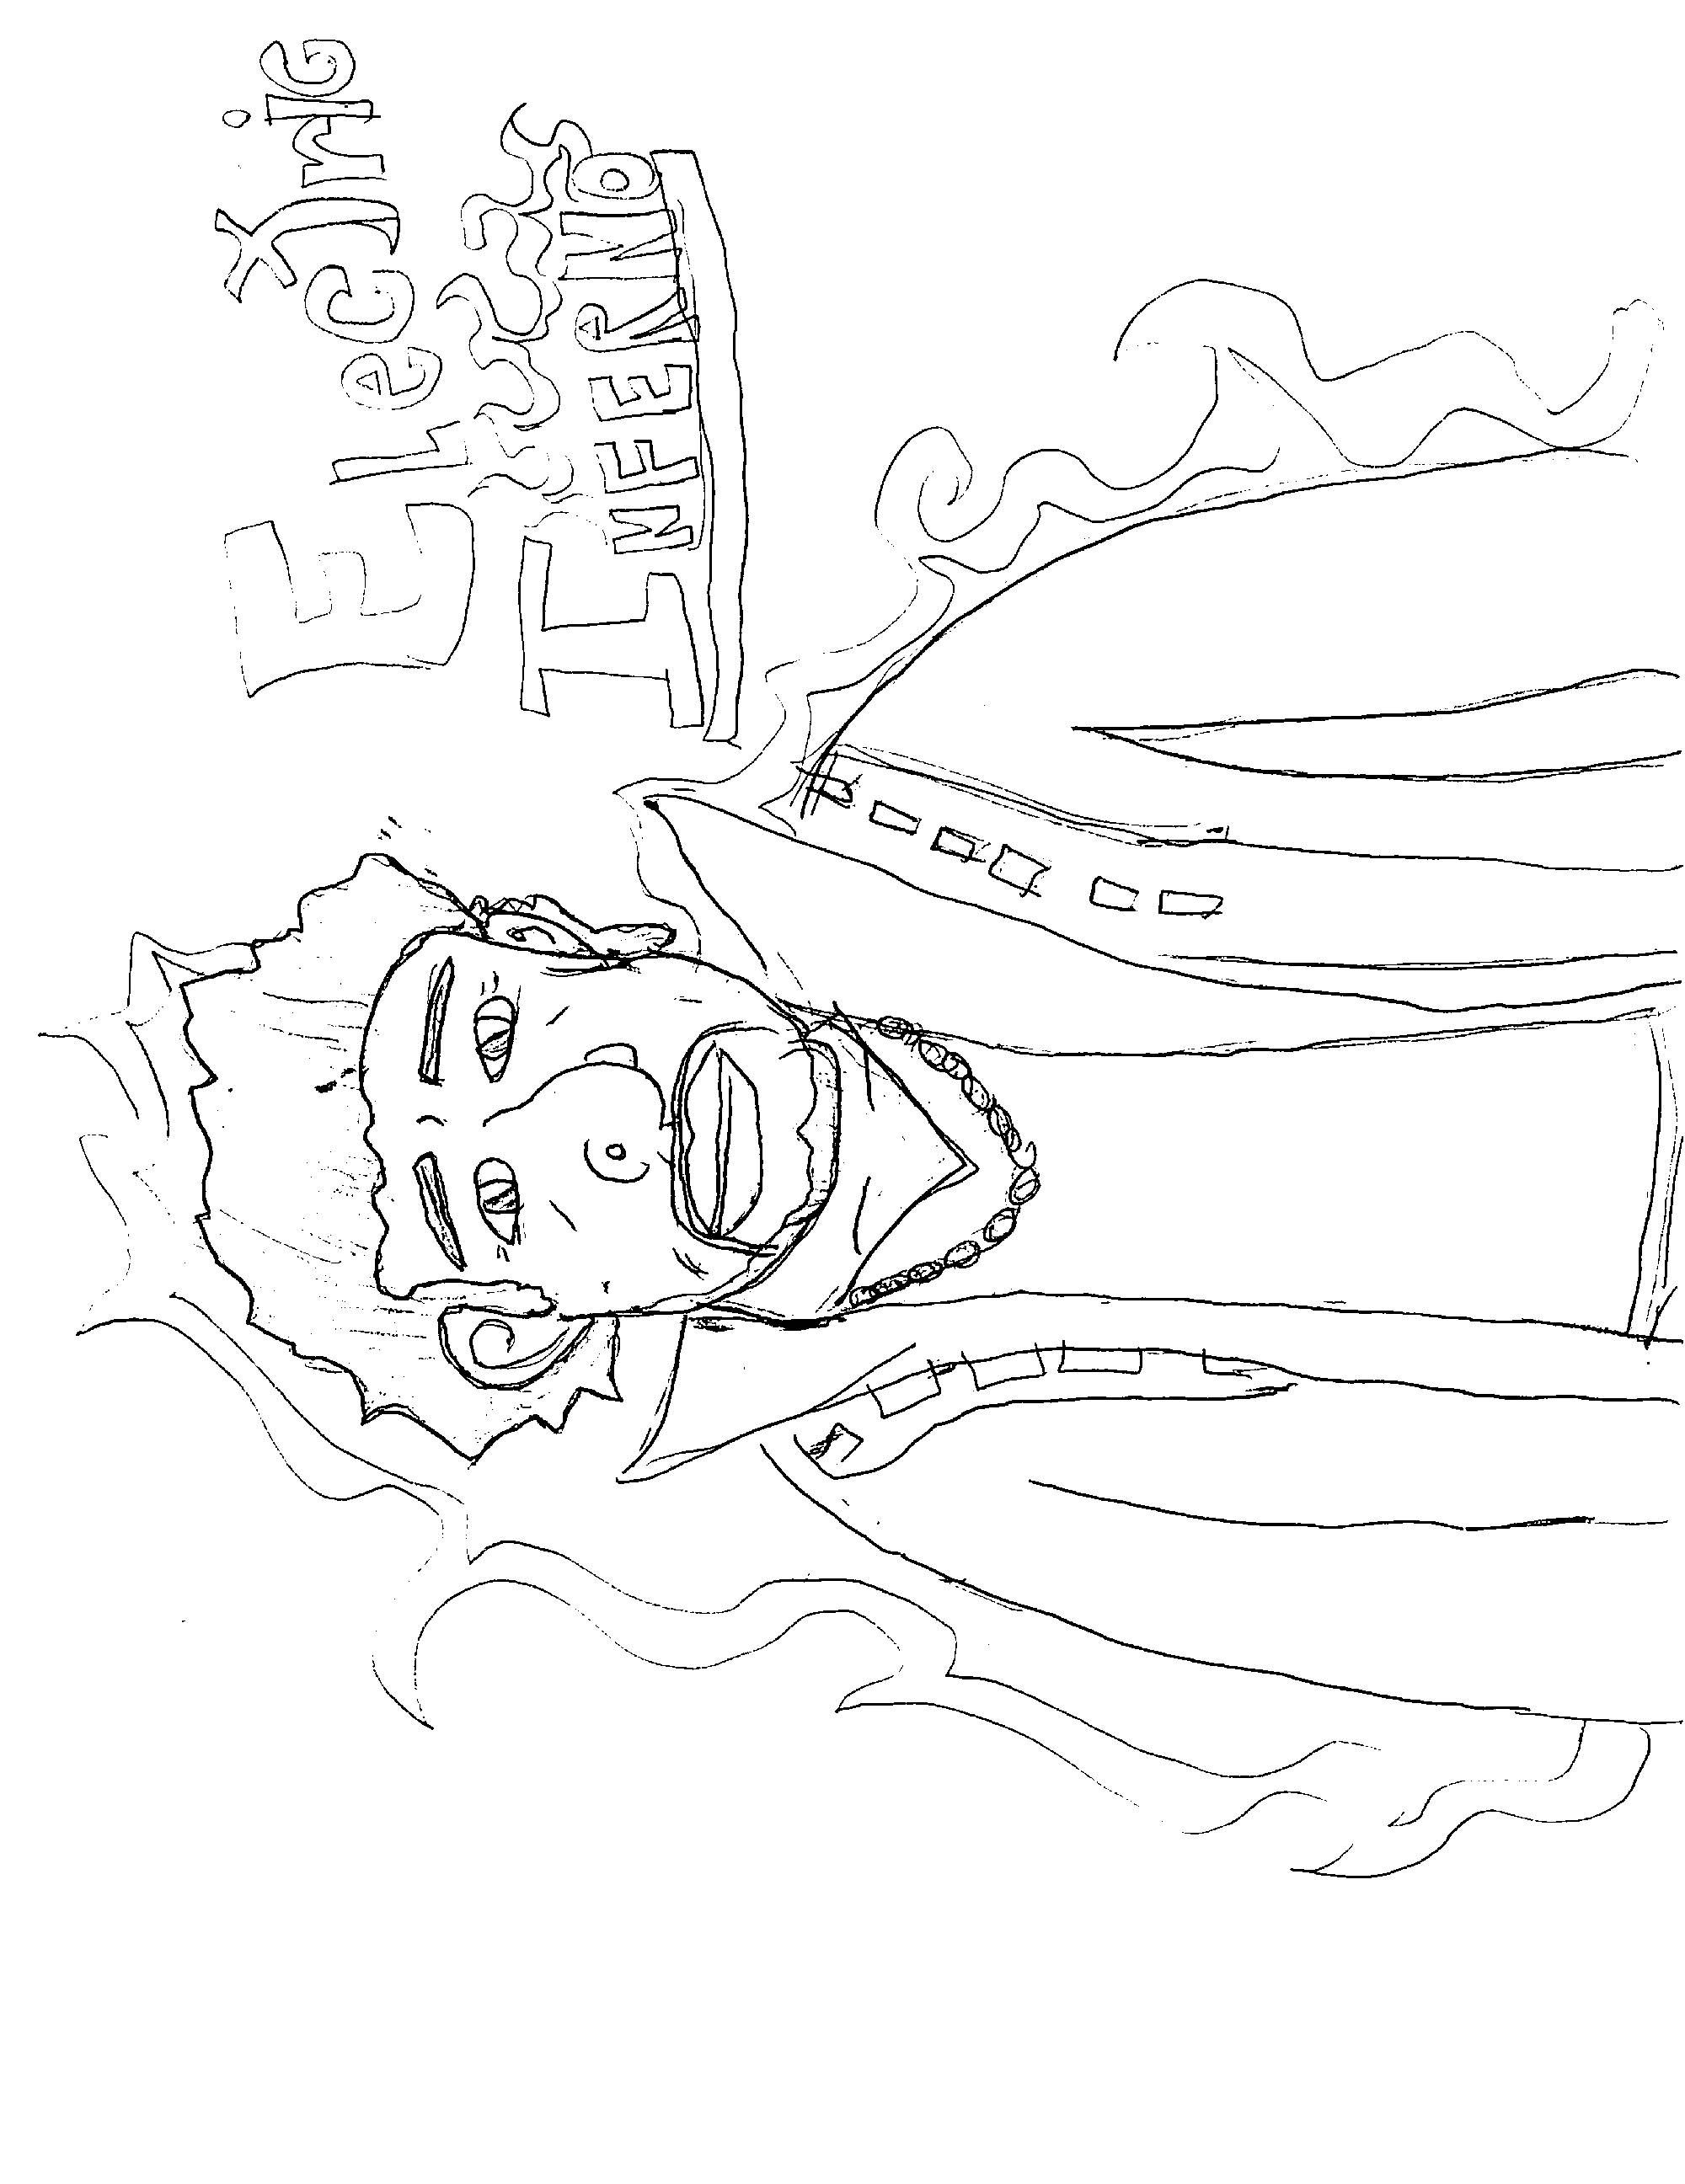 Electric
INFERNO